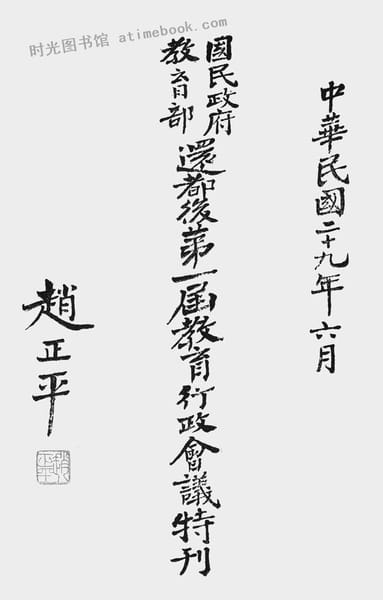 时光图书馆 atimebook.com
中華民國二十九年六月
國民政府
教育部
還都後第一届教育行政會議特刊
趙正平